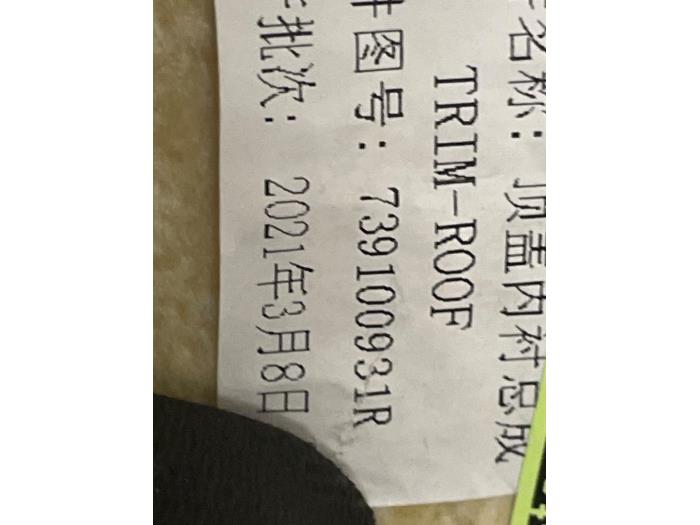 件名称: 顶盖内衬总成
TRIM-ROOF
件图号: 739100931R
件批次: 2021年3月8日